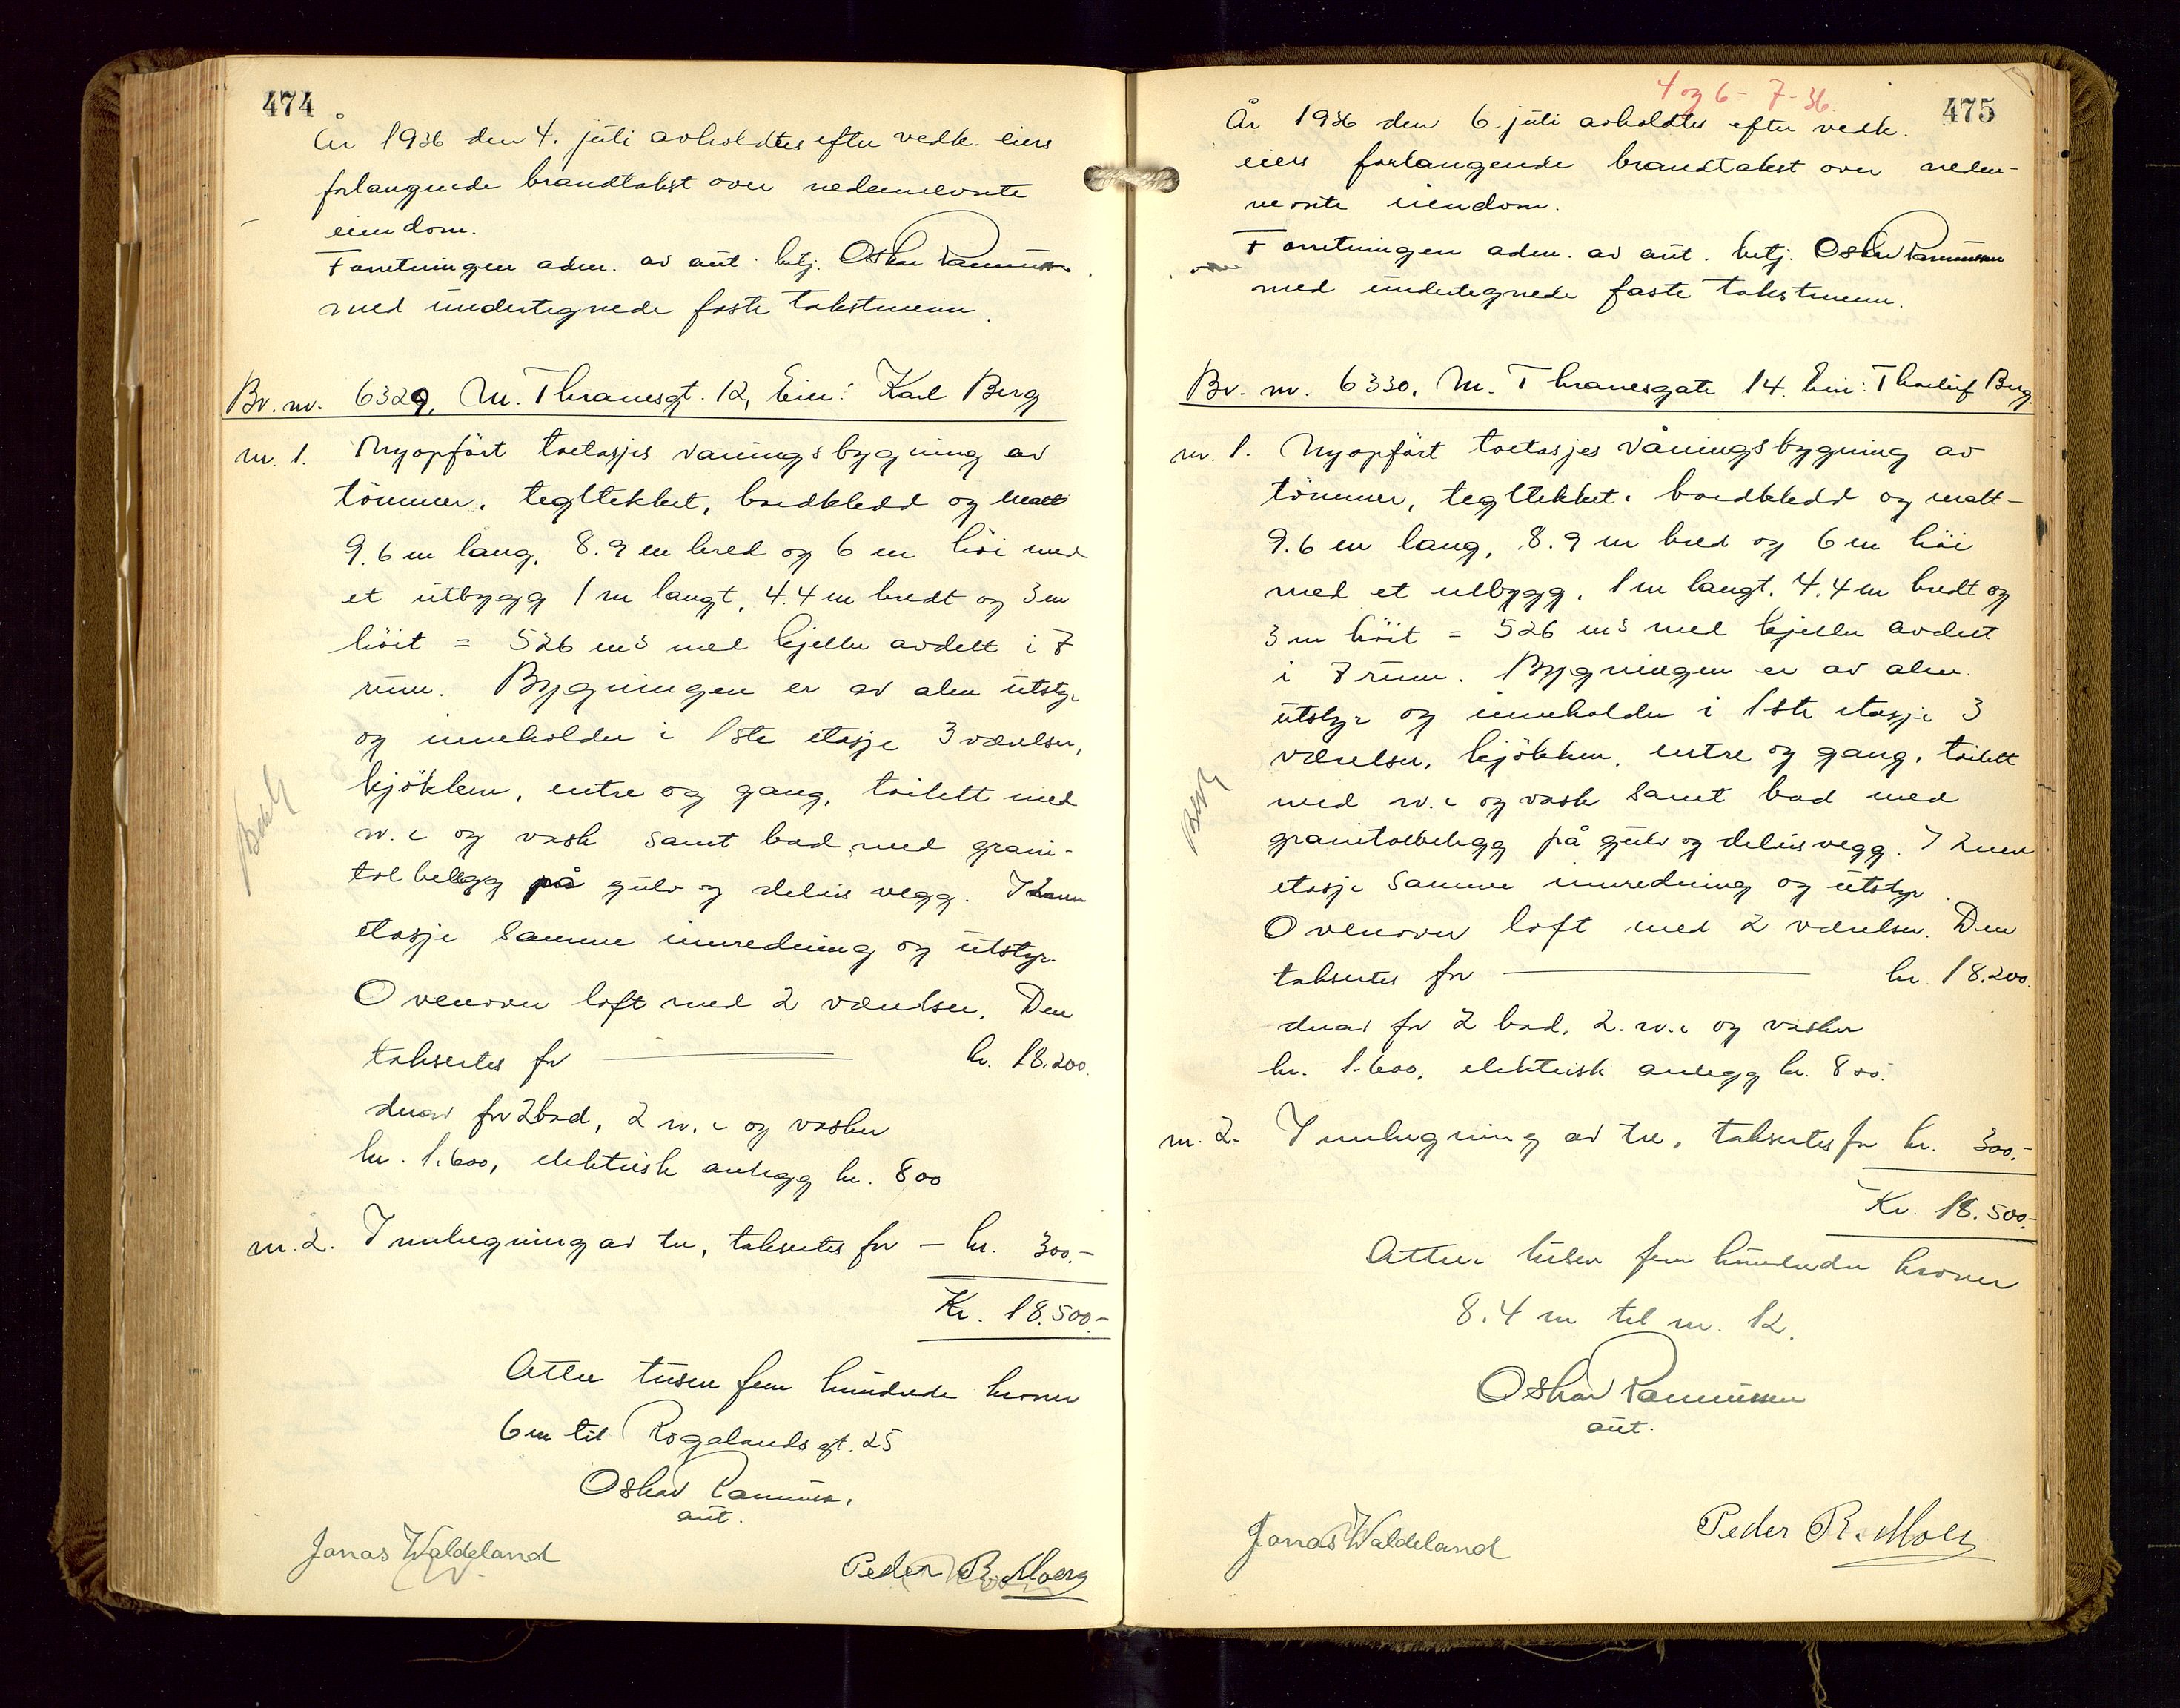 474
År 1936 den 4. juli avholdtes efter vedk. eiers
forlangende brandtakst over nedennevnte
eiendom.
Forretningen adm. av aut. betj. Oskar Rasmussen
med undertegnede faste takstmenn.
Br. nr. 6329, M. Thranesgt. 12, Eier: Karl Berg
nr. 1. Nyopført toetasjes våningsbygning av
tömmer, tegltekket, bordkledd og malt
9.6 m lang, 8.9 m bred og 6 m höi med
et utbygg 1 m langt, 4.4 m bredt og 3 m
höit = 526 m3 med kjeller avdelt i 7
rum. Bygningen er av alm utstyr
og inneholder i 1ste etasje 3 værelser,
kjökken, entre og gang, toilett med
w.c og vask samt bad med grani-
tolbelegg på gulv og delvis vegg. I 2nen
etasje samme innredning og utstyr.
Ovenover loft med 2 værelser. Den
takseres for kr. 18.200.
derav for 2 bad, 2 w.c og vasker
kr. 1.600, elektrisk anlegg kr. 800
nr. 2. Innhegning av tre, takseres for - kr. 300.-
Kr. 18.500.-
Atten tusen fem hundrede kroner
6 m til Rogalandsgt. 25
Oskar Rasmussen
aut.
Jonas Waldeland
Peder R. Moers
4 og 6 - 7 - 36.
475
År 1936 den 6. juli avholdtes efter vedk.
eiers forlangende brandtakst over neden-
nevnte eiendom.
Forretningen adm. av aut. betj. Oskar Rasmussen
med undertegnede faste takstmenn.
Br. nr. 6330, M. Thranesgate 14. Eier: Thorleif Berg
nr. 1. Nyopført toetasjes våningsbygning av
tömmer, tegltekket, bordkledd og malt -
9.6 m lang, 8.9 m bred og 6 m höi
med et utbygg, 1 m langt, 4.4 m bredt og
3 m höit = 526 m3 med kjeller avdelt
i 7 rum. Bygningen er av alm.
utstyr og inneholder i 1ste etasje 3
værelser, kjökken, entre og gang, toilett
med w.c og vask samt bad med
granitolbelegg på gulv og delvis vegg. I 2nen
etasje samme innredning og utstyr.
Ovenover loft med 2 værelser. Den
takseres for kr. 18.200.
derav for 2 bad, 2 w.c og vasker
kr. 1.600, elektrisk anlegg kr. 800.
nr. 2. Innhegning av tre, takseres for kr. 300.-
Kr. 18.500.-
Atten tusen fem hundrede kroner
8.4 m til nr. 12.
Oskar Rasmussen
aut.
Jonas Waldeland
Peder R. Moers